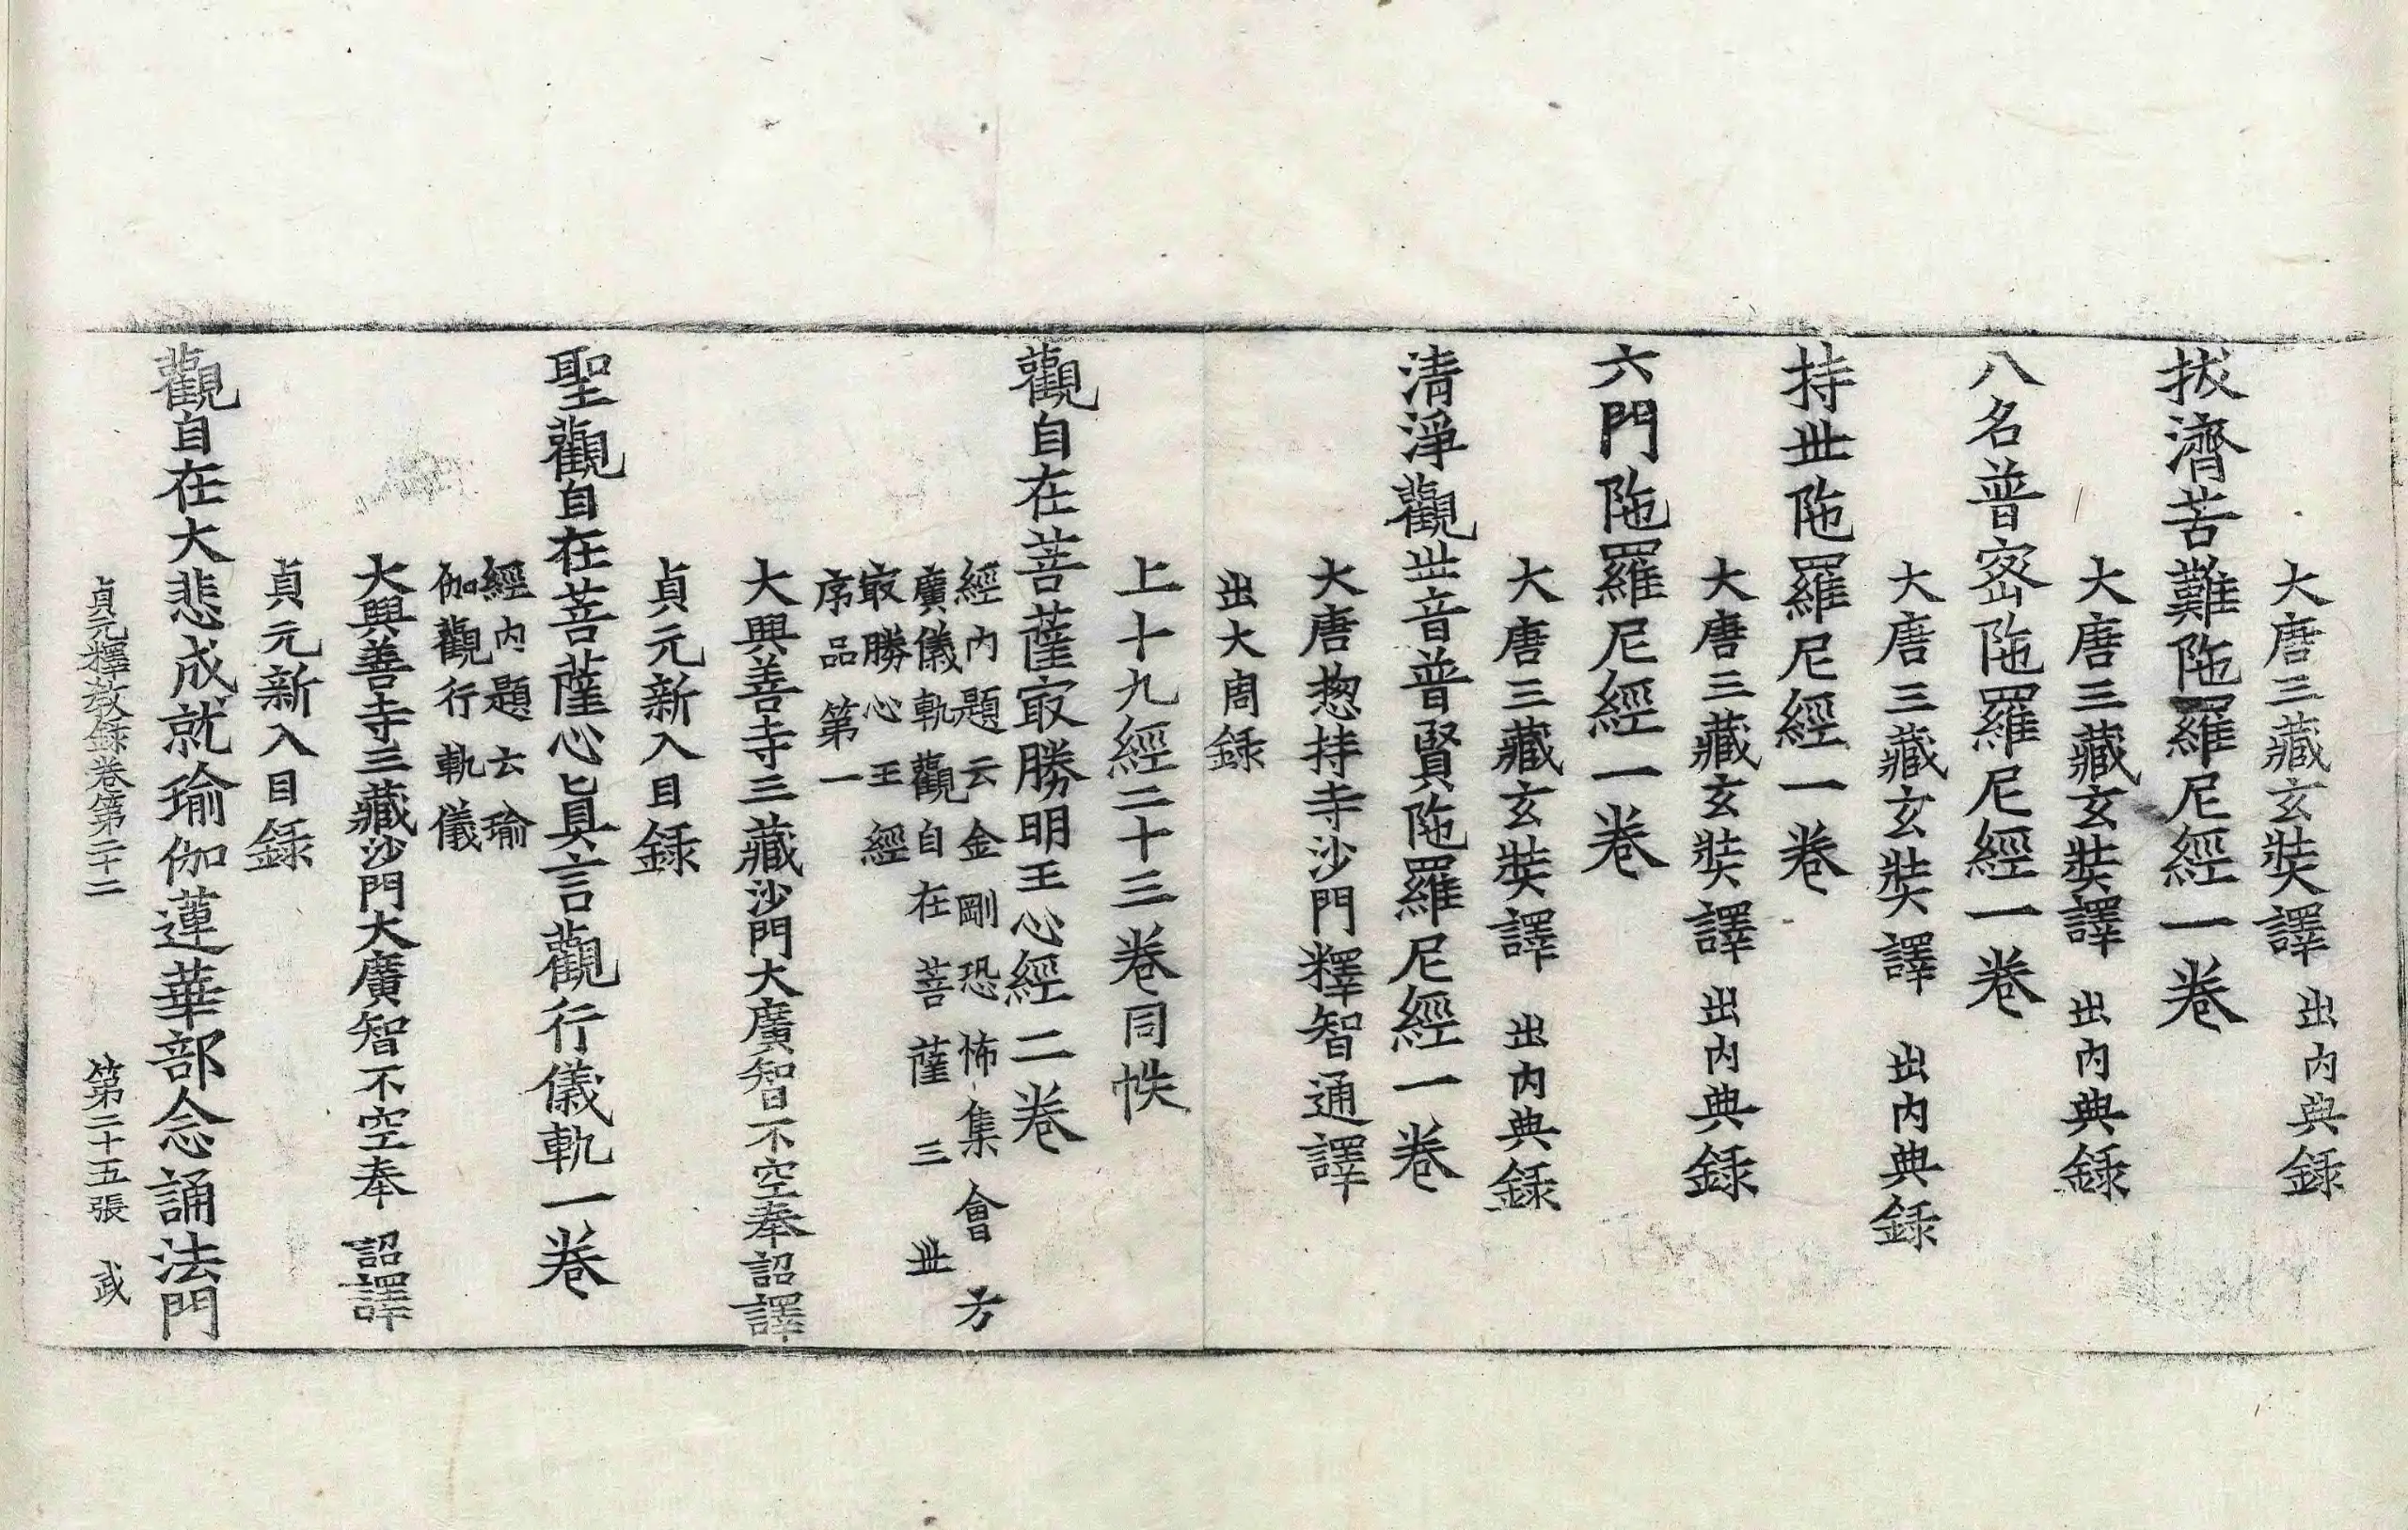 大唐三藏玄奘譯　出内典録
拔濟苦難陁羅尼經一卷
大唐三藏玄奘譯　出内典録
八名普宻陁羅尼經一卷
大唐三藏玄奘譯　出内典録
持丗陁羅尼經一卷
大唐三藏玄奘譯　出内典録
六門陁羅尼經一卷
大唐三藏玄奘譯　出内典録
清淨觀丗音普賢陁羅尼經一卷
大唐揔持寺沙門釋智通譯
出大周録
上十九經二十三卷同帙
觀自在菩薩㝡勝明王心經二卷
經内題云金剛恐怖集會方
廣儀軌觀自在菩薩三丗
㝡勝心王經
序品第一
大興善寺三藏沙門大廣智不空奉詔譯
貞元新入目録
聖觀自在菩薩心眞言觀行儀軌一卷
經内題云瑜
伽觀行軌儀
大興善寺三藏沙門大廣智不空奉　詔譯
貞元新入目録
觀自在大悲成就瑜伽蓮華部念誦法門
貞元釋教録卷第二十二　第二十五張　㦯